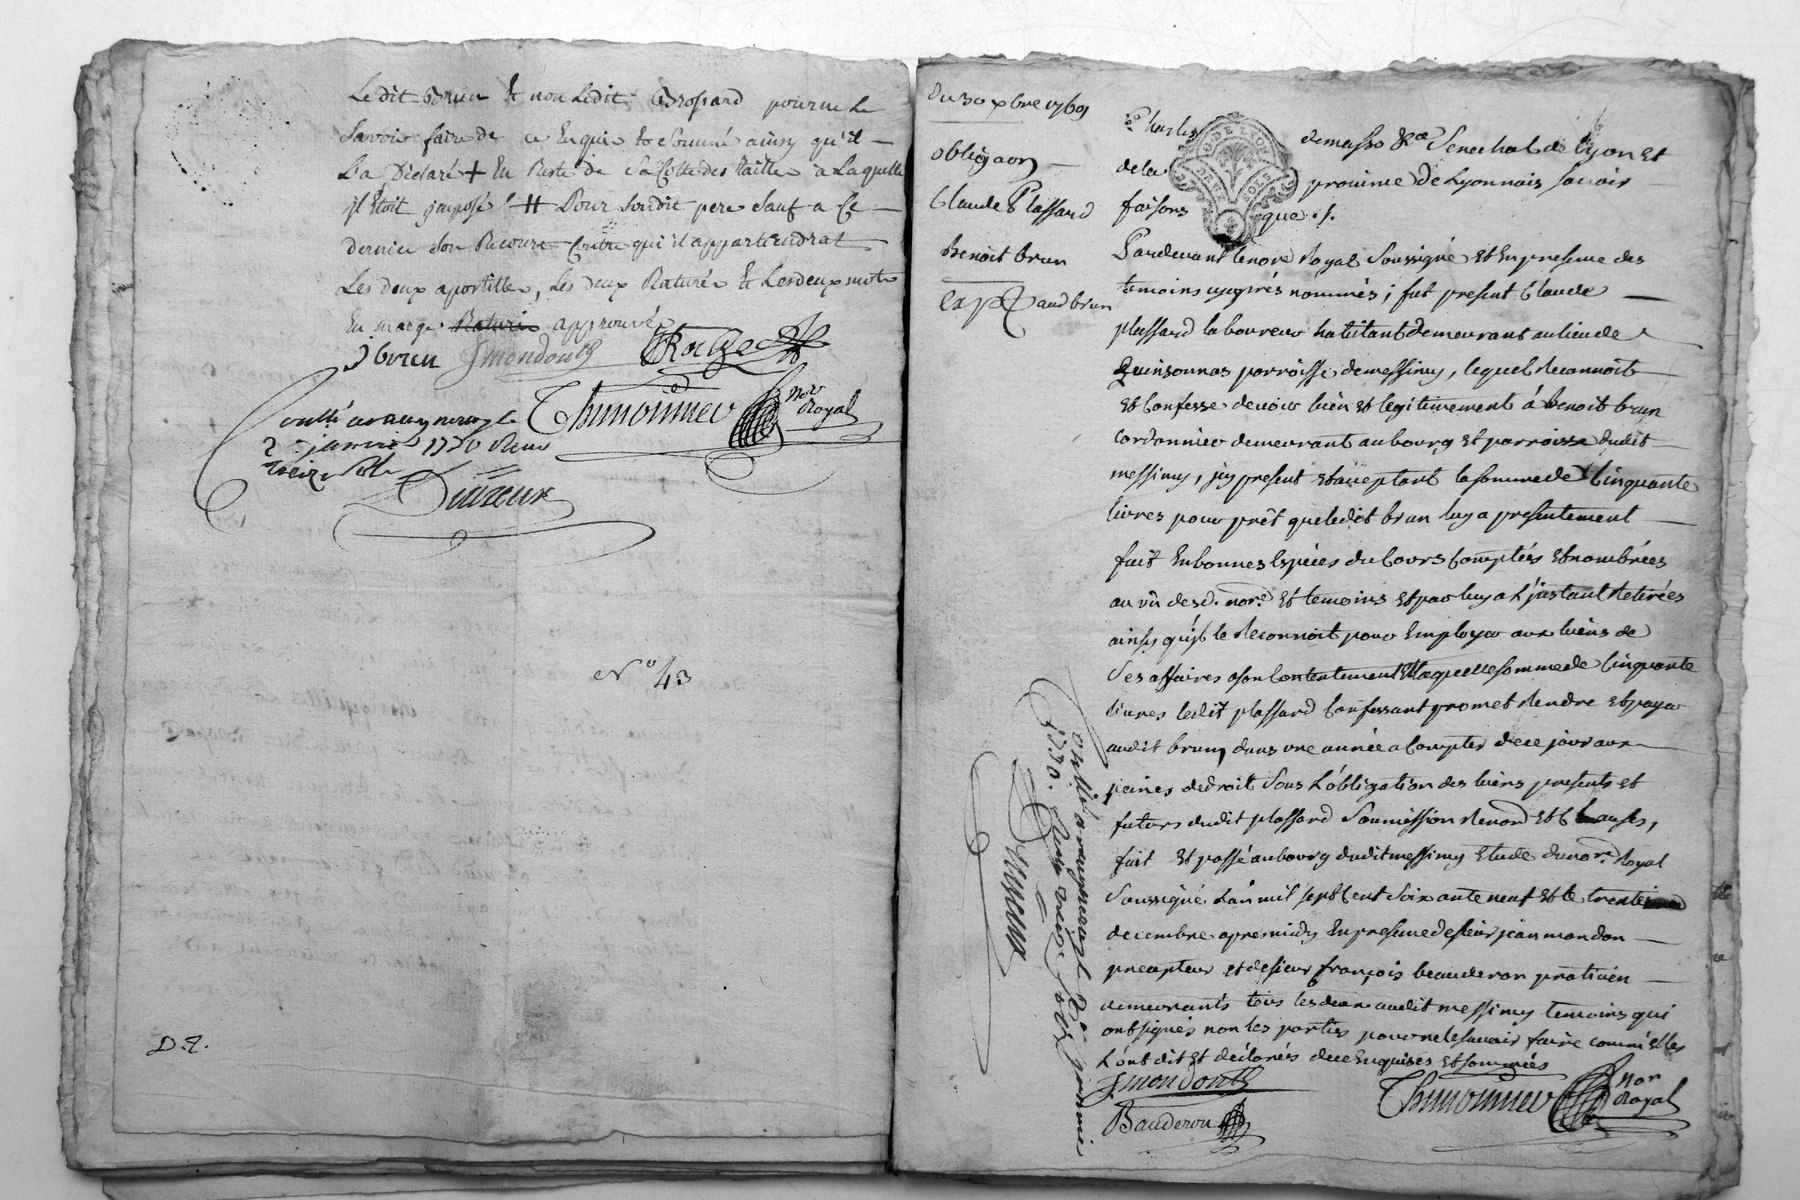 Ledit Brun & non Ledit Brossard pour ne Le
Savoir faire de ce Enquis & Sommé ainsy qu'il
L'a Déclaré + En Reste de Sa Cotte des taille à Laquelle
jl Etoit jmposé # Pour Sondit pere Sauf a Ce
dernier Son Recours Contre qui il appartiendrat
Les deux apostille, Les deux Raturé & Les deux mots
En marge Raturé approuvé
J brun J mondon
Thimonnier nore Royal
Conllé a
2 janvier 1770 Reçu
treize sols
N° 43
D. 2.
du 30 xbre 1769
obligaon
Claude Plassard
Benoit brun
exp audt brun
Charles demasso &ca Senechal de Lyon Et
de la province de Lyonnais savoir
faisons que ./.
Pardevant le nore Royal Soussigné Et En presence des
temoins cyaprés nommés ; fut present Claude
plassard laboureur habitant demeurant au lieu de
Quinsonnas parroisse de messimy, lequel Reconnoit
Et Confesse devoir bien Et legitimement á benoit brun
cordonnier demeurant au bourg Et parroisse dudit
messimy, jcy present Et acceptant la somme de Cinquante
livres pour prêt que ledit brun luy a presentement
fait En bonnes Espéces du Cours Comptées Et nombrées
au vû desd. nore. Et temoins Et par luy a L'jnstant Retirées
ainsy qu'jl le Reconnoit pour Employer aux biens de
Ses affaires a son Contentement Et laquelle somme de Cinquante
livres ledit plassard Confessant promet Rendre Et payer
audit brun dans une année a Compter de ce jour aux
peines de droit Sous L'obligation des biens presents et
futurs dudit plassard Soumission Renond Et Clauses,
fait Et passé au bourg dudit messimy Etude du nore. Royal
Soussigné L'an mil sept Cent Soixante neuf Et le trente
decembre apres midy En presence de sieur jean mondon
precepteur et de sieur françois beauderon praticien
demeurants tous les deux audit messimy temoins qui
ont signés non les parties pour ne le savoir faire comm'Elles
L'ont dit Et déclarées de ce Enquises Et sommées
J mondon
Thimonnier nor Royal
Bauderon
1770. Reçu treize sols